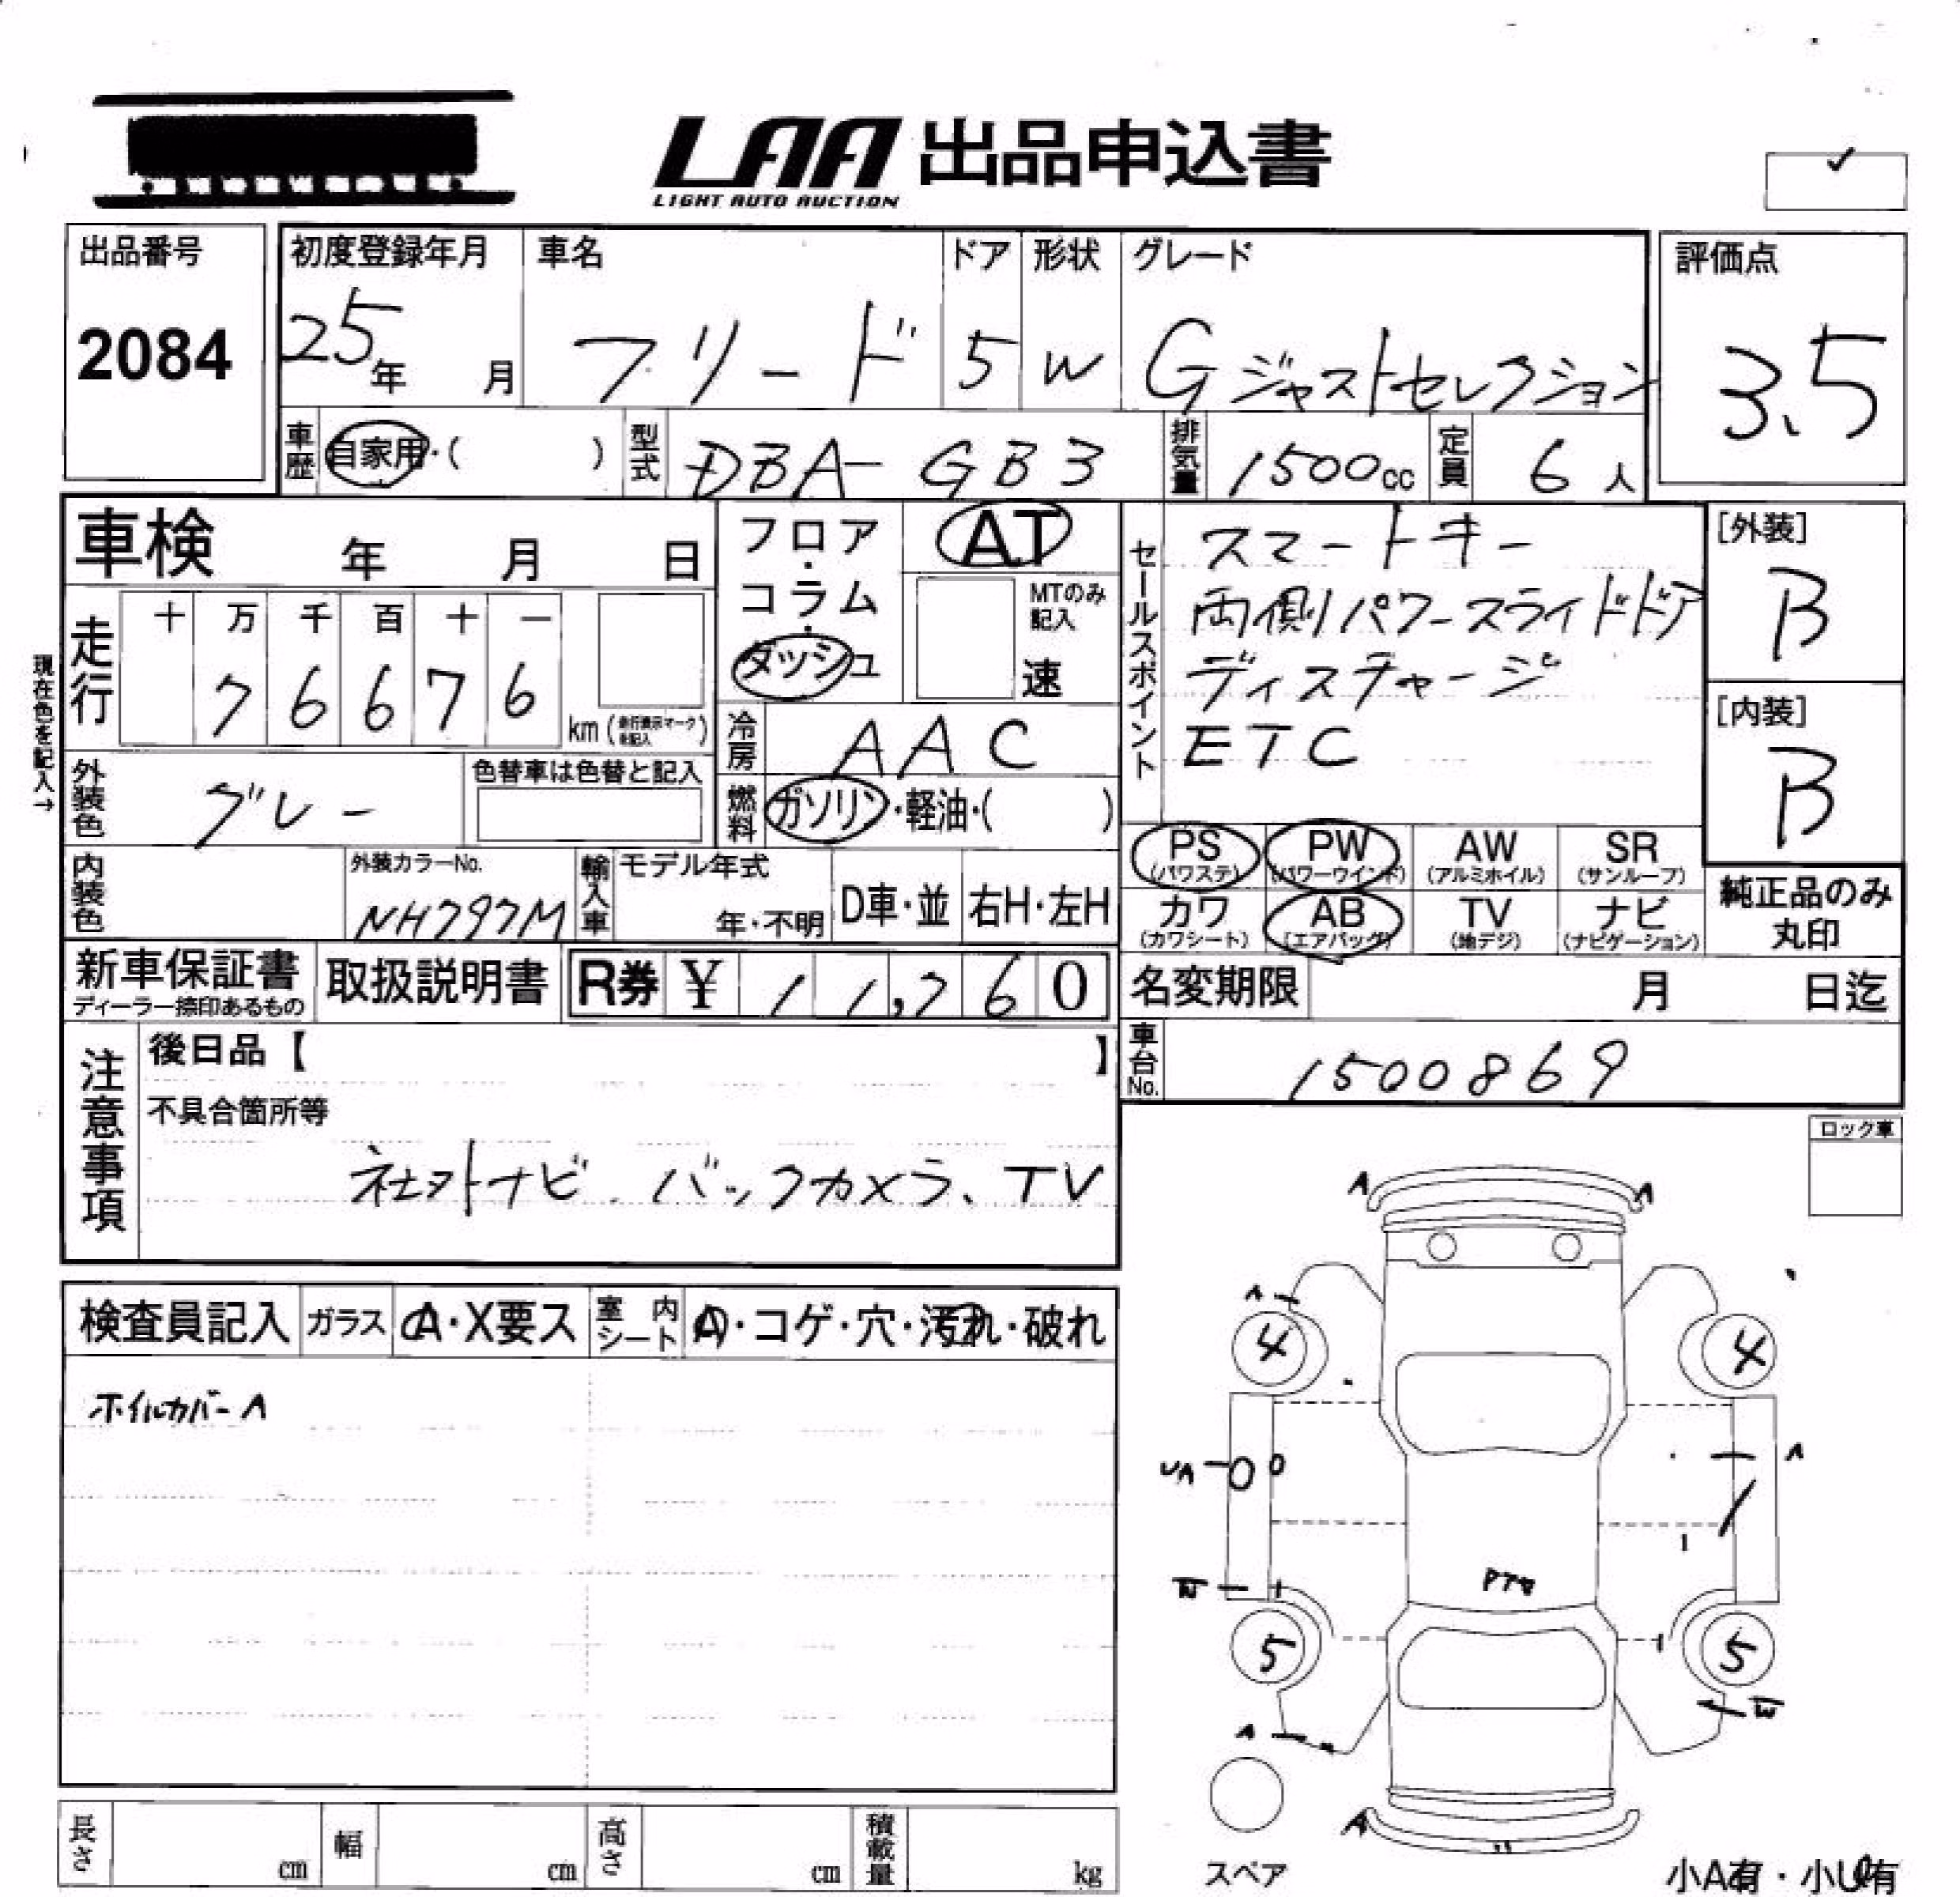 LAA 出品申込書
LIGHT AUTO AUCTION
出品番号
2084
初度登録年月
25年 月
車名
フリード
ドア
5
形状
W
グレード
Gジャストセレクション
評価点
3.5
車歴
自家用・( )
型式
DBA-GB3
排気量
1500cc
定員
6人
車検 年 月 日
フロア・コラム・ダッシュ
AT
MTのみ記入
速
セールスポイント
スマートキー
両側パワースライドドア
ディスチャージ
ETC
[外装]
B
[内装]
B
現在色を記入→
走行
十 万 千 百 十 一
7 6 6 7 6
km (走行表示マークを記入)
冷房
AAC
外装色
グレー
色替車は色替と記入
燃料
ガソリン・軽油・( )
PS (パワステ)
PW (パワーウインド)
AW (アルミホイル)
SR (サンルーフ)
カワ (カワシート)
AB (エアバッグ)
TV (地デジ)
ナビ (ナビゲーション)
純正品のみ
丸印
内装色
外装カラーNo.
NH797M
輸入車
モデル年式
年・不明
D車・並
右H・左H
新車保証書
ディーラー捺印あるもの
取扱説明書
R券 ¥ 11,760
名変期限 月 日迄
車台No.
1500869
注意事項
後日品【 】
不具合箇所等
社外ナビ、バックカメラ、TV
ロック車
検査員記入
ガラス
A・X要ス
室内シート
A・コゲ・穴・汚れ・破れ
ホイルカバーA
A A
A
4 4
UA A
5 5
W
A
A
スペア
長さ cm
幅 cm
高さ cm
積載量 kg
小A有・小U有